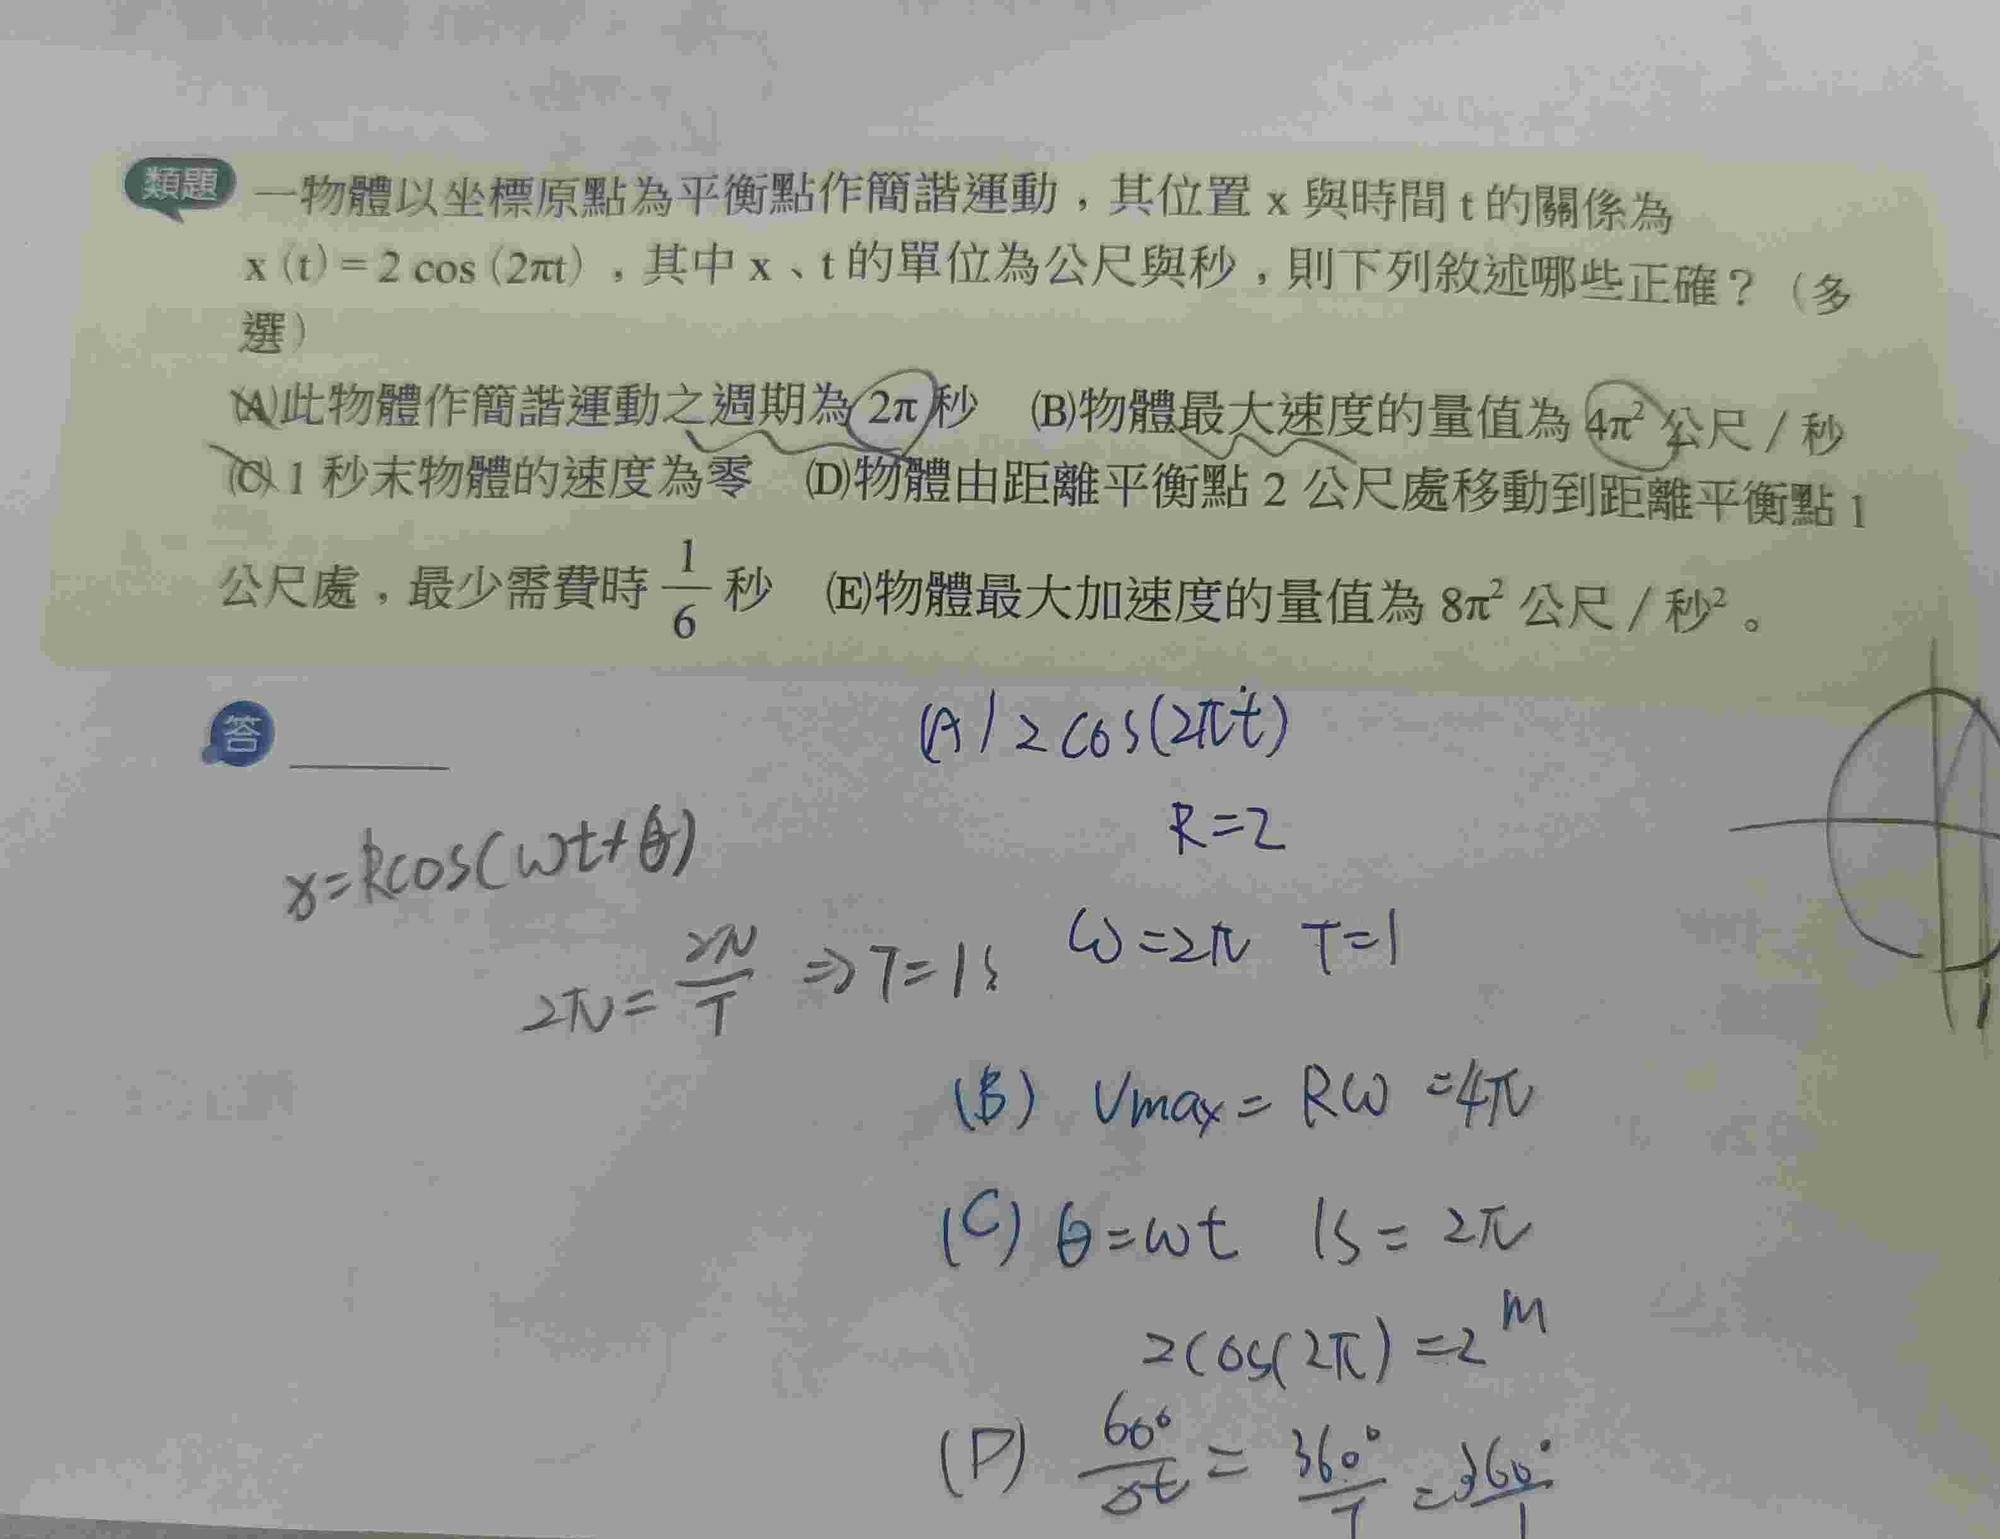 類題 一物體以坐標原點為平衡點作簡諧運動，其位置 x 與時間 t 的關係為
x (t) = 2 cos (2πt) ，其中 x 、t 的單位為公尺與秒，則下列敘述哪些正確？（多
選）
(A)此物體作簡諧運動之週期為 2π 秒 (B)物體最大速度的量值為 4π² 公尺 / 秒
(C) 1 秒末物體的速度為零 (D)物體由距離平衡點 2 公尺處移動到距離平衡點 1
公尺處，最少需費時 1/6 秒 (E)物體最大加速度的量值為 8π² 公尺 / 秒² 。
答
x=Rcos(ωt+θ)
2π = 2π/T ⇒ T=1s
(A) 2 cos(2πt)
R=2
ω=2π T=1
(B) Vmax = Rω =4π
(C) θ=ωt 1s = 2π
2cos(2π) =2 m
(D) 60°/Δt = 360°/T = 360°/1